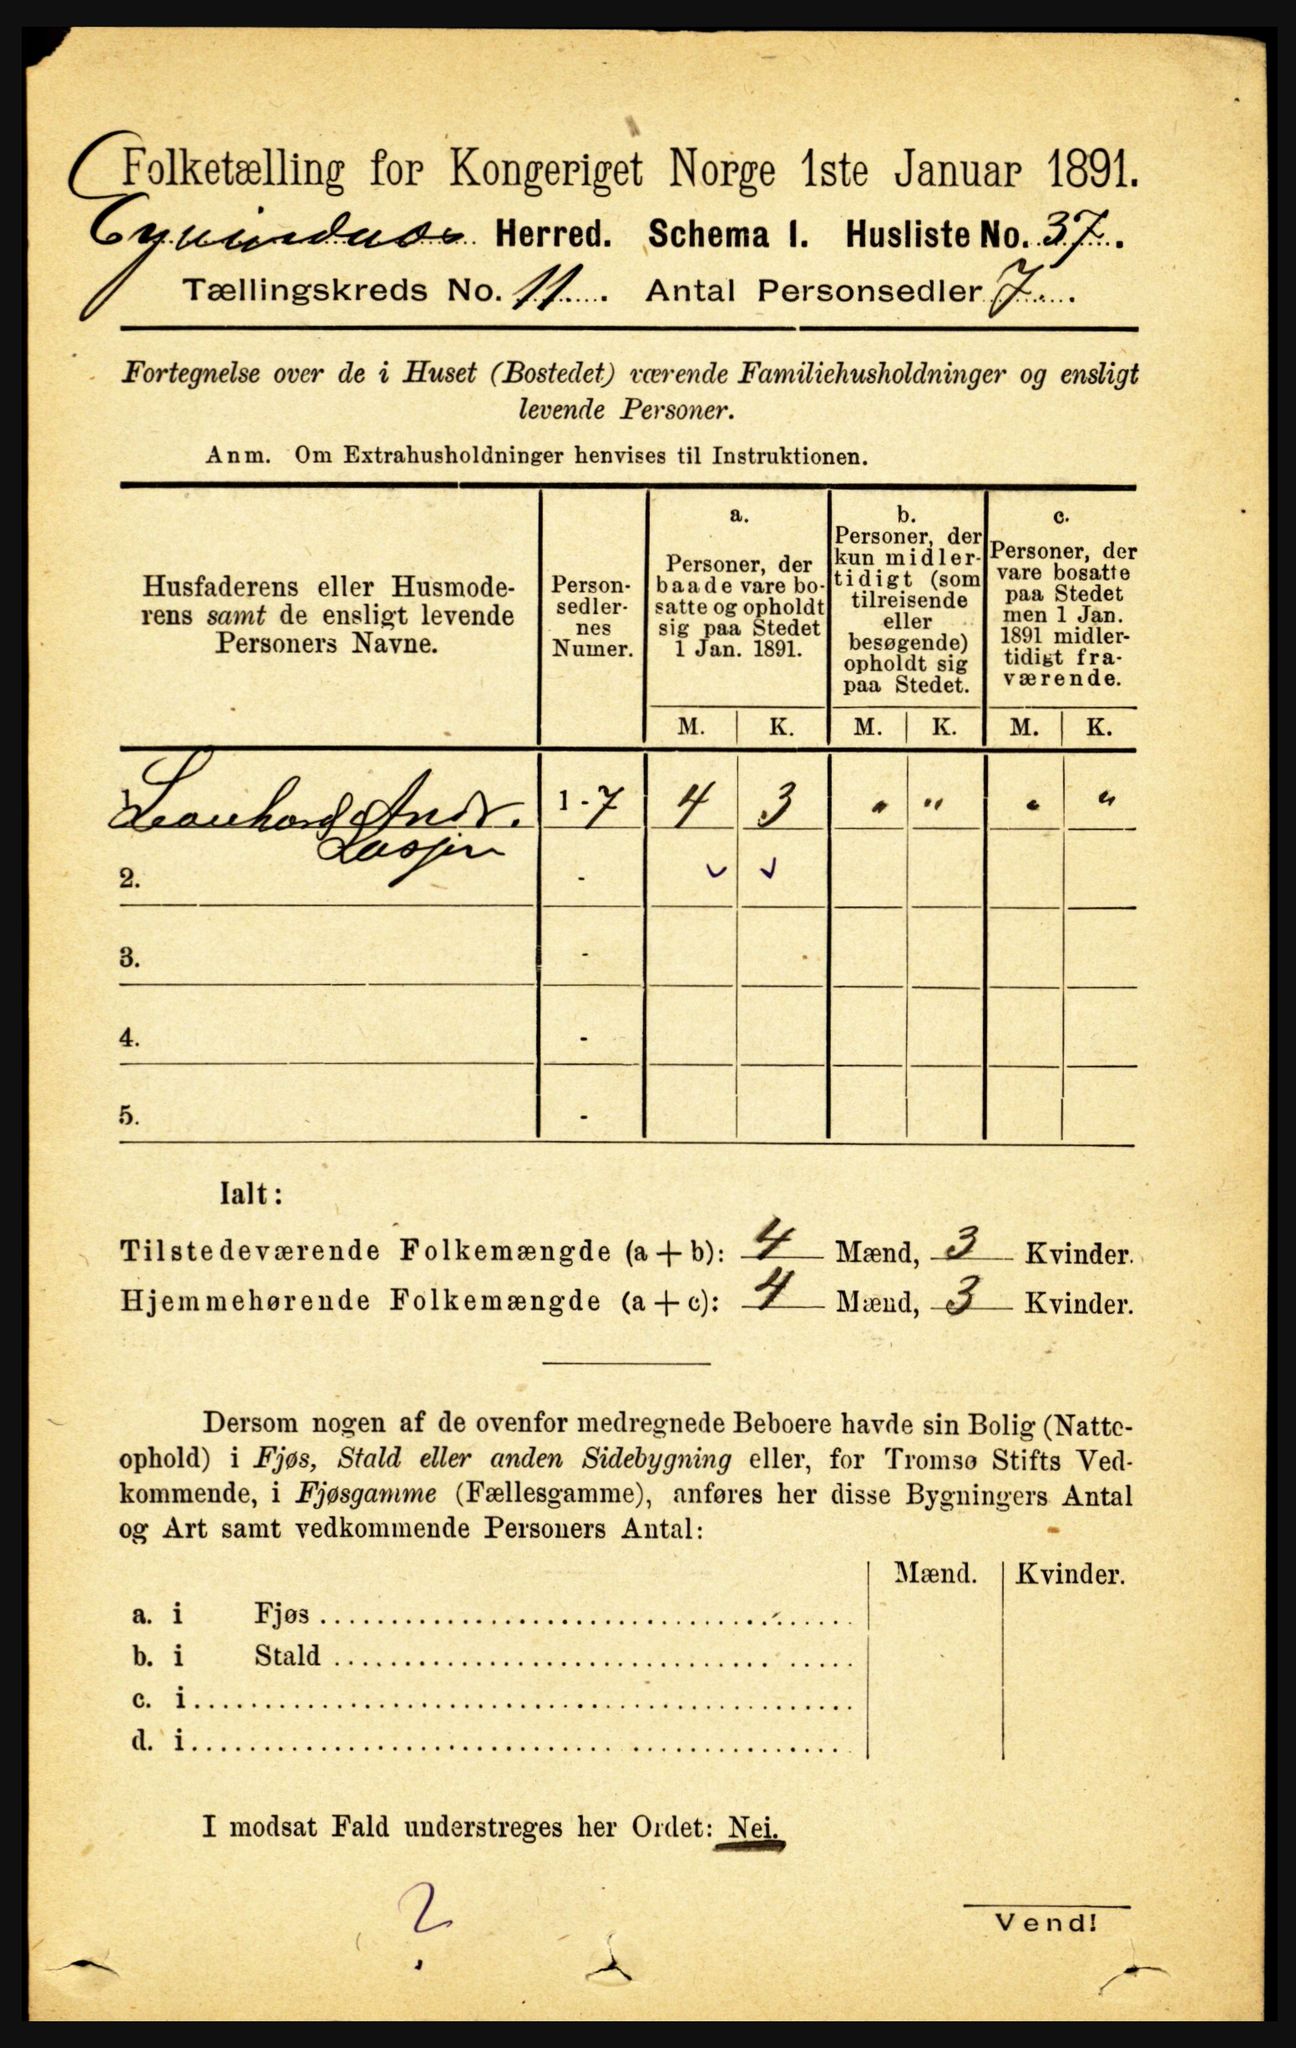 Folketælling for Kongeriget Norge 1ste Januar 1891.
Herred. Schema I. Husliste No. 37.
Tællingskreds No. 11. Antal Personsedler 7.
Fortegnelse over de i Huset (Bostedet) værende Familiehusholdninger og ensligt
levende Personer.
Anm. Om Extrahusholdninger henvises til Instruktionen.
Husfaderens eller Husmode-
rens samt de ensligt levende
Personers Navne.
Person-
sedler-
nes
Numer.
a.
Personer, der
baade vare bo-
satte og opholdt
sig paa Stedet
1 Jan. 1891.
b.
Personer, der
kun midler-
tidigt (som
tilreisende
eller
besøgende)
opholdt sig
paa Stedet.
c.
Personer, der
vare bosatte
paa Stedet
men 1 Jan.
1891 midler-
tidigt fra-
værende.
M. K. M. K. M. K.
Andr. 1-7 4 3 " " " "
2. -
3. -
4. -
5. -
Ialt:
Tilstedeværende Folkemængde (a+b): 4 Mænd, 3 Kvinder.
Hjemmehørende Folkemængde (a+c): 4 Mænd, 3 Kvinder.
Dersom nogen af de ovenfor medregnede Beboere havde sin Bolig (Natte-
ophold) i Fjøs, Stald eller anden Sidebygning eller, for Tromsø Stifts Ved-
kommende, i Fjøsgamme (Fællesgamme), anføres her disse Bygningers Antal
og Art samt vedkommende Personers Antal:
Mænd. Kvinder.
a. i Fjøs
b. i Stald
c. i
d. i
I modsat Fald understreges her Ordet: Nei.
?
Vend!